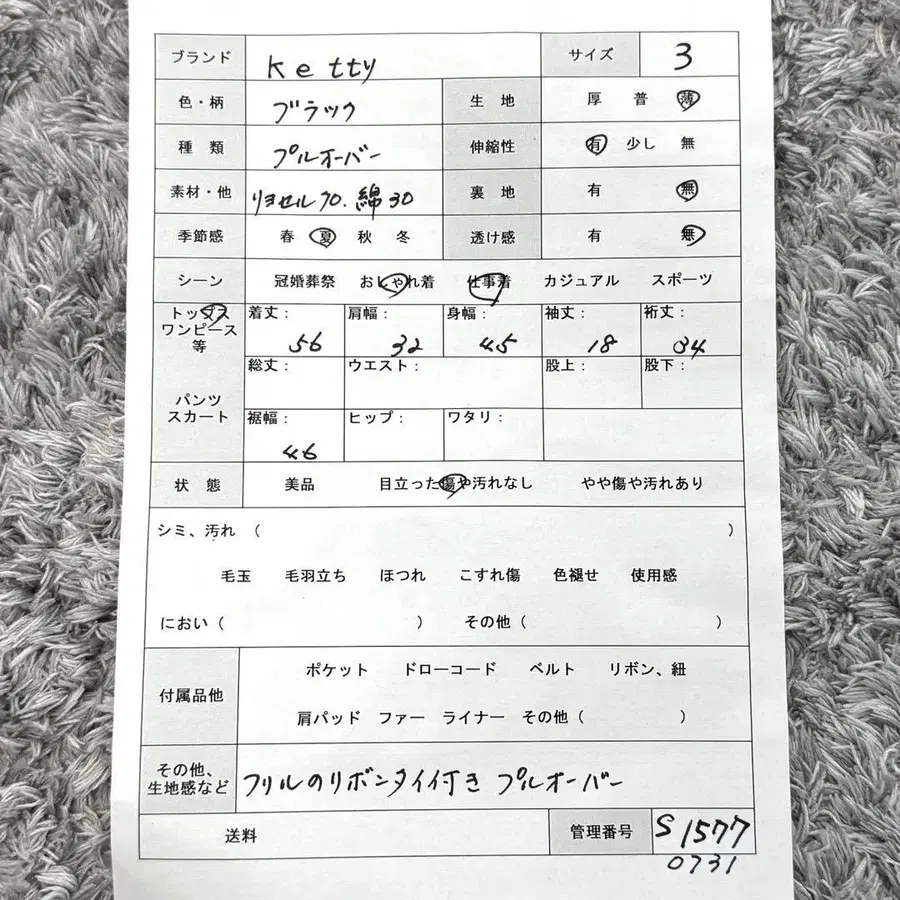 ブランド Ketty サイズ 3
色・柄 ブラック 生地 厚 普 薄
種類 プルオーバー 伸縮性 有 少し 無
素材・他 リヨセル70.綿30 裏地 有 無
季節感 春 夏 秋 冬 透け感 有 無
シーン 冠婚葬祭 おしゃれ着 仕事着 カジュアル スポーツ
トップス ワンピース 等 着丈: 56 肩幅: 32 身幅: 45 袖丈: 18 裄丈: 34
パンツ スカート 総丈: ウエスト: 股上: 股下:
裾幅: 46 ヒップ: ワタリ:
状態 美品 目立った傷や汚れなし やや傷や汚れあり
シミ、汚れ ( )
毛玉 毛羽立ち ほつれ こすれ傷 色褪せ 使用感
におい( ) その他( )
付属品他 ポケット ドローコード ベルト リボン、紐
肩パッド ファー ライナー その他( )
その他、生地感など フリルのリボンタイ付き プルオーバー
送料 管理番号 S1577
0731